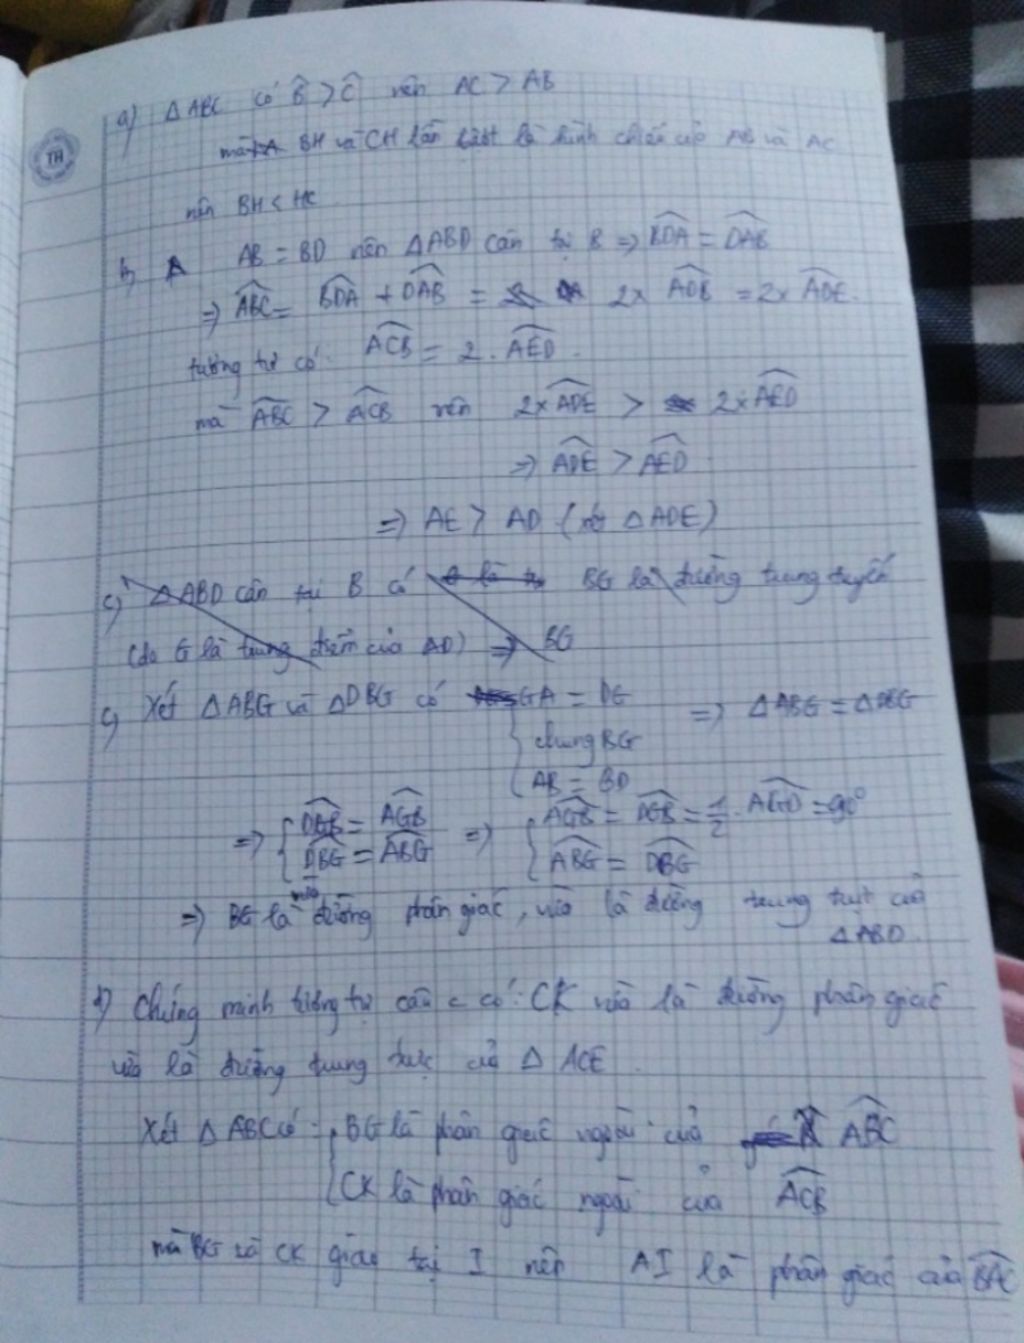 TH
a) Δ ABC có B̂ > Ĉ nên AC > AB
mà BH và CH lần lượt là hình chiếu của AB và AC
nên BH < HC
b) AB = BD nên ΔABD cân tại B => \widehat{BDA} = \widehat{DAB}
=> \widehat{ABC} = \widehat{BDA} + \widehat{DAB} = 2x \widehat{ADB} = 2x \widehat{ADE}.
tương tự có: \widehat{ACB} = 2 . \widehat{AED}.
mà \widehat{ABC} > \widehat{ACB} nên 2x \widehat{ADE} > 2x \widehat{AED}
=> \widehat{ADE} > \widehat{AED}
=> AE > AD (xét Δ ADE)
c) Δ ABD cân tại B có BG là đường trung tuyến
(do G là trung điểm của AD) => BG
c) Xét Δ ABG và Δ DBG có GA = DG => Δ ABG = Δ DBG
chung BG
AB = BD
=> { \widehat{DGB} = \widehat{AGB} => { \widehat{AGB} = \widehat{DGB} = 1/2 . \widehat{AGD} = 90°
\widehat{DBG} = \widehat{ABG} \widehat{ABG} = \widehat{DBG}
=> BG vừa là đường phân giác, vừa là đường trung trực của
Δ ABD.
d) Chứng minh tương tự câu c có: CK vừa là đường phân giác
vừa là đường trung trực của Δ ACE.
Xét Δ ABC có: { BG là phân giác ngoài của \widehat{ABC}
CK là phân giác ngoài của \widehat{ACB}
mà BG và CK giao tại I nên AI là phân giác của \widehat{BAC}